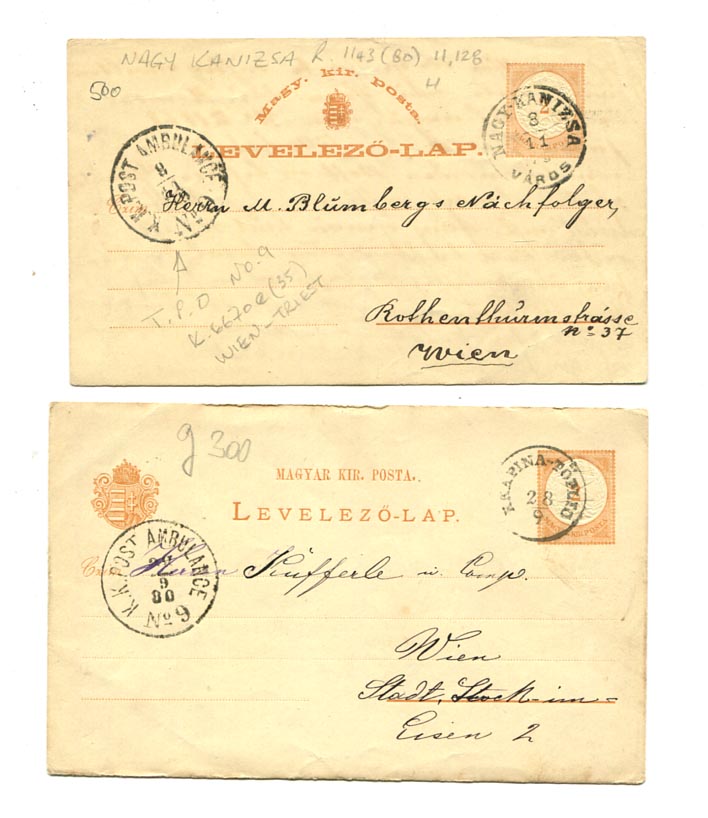 NAGY KANIZSA R. 1143 (80) 11,128
H
500
Magy. kir. posta.
LEVELEZŐ-LAP.
2
NAGY-KANIZSA
8
11
VÁROS
K.K. POST AMBULANCE No 9
Herrn M. Blumbergs Nachfolger,
T.P.O NO. 9
K.6670e (35)
WIEN-TRIEST
Rothenthürmstrásse
No 37
Wien
g 300
MAGYAR KIR. POSTA.
LEVELEZŐ-LAP.
KRAPINA-TÖPLITZ
28
9
K.K. POST AMBULANCE No 9
9
80
Herrn Küfferle u. Comp.
Wien
Stadt, Stock-im-
Eisen 2